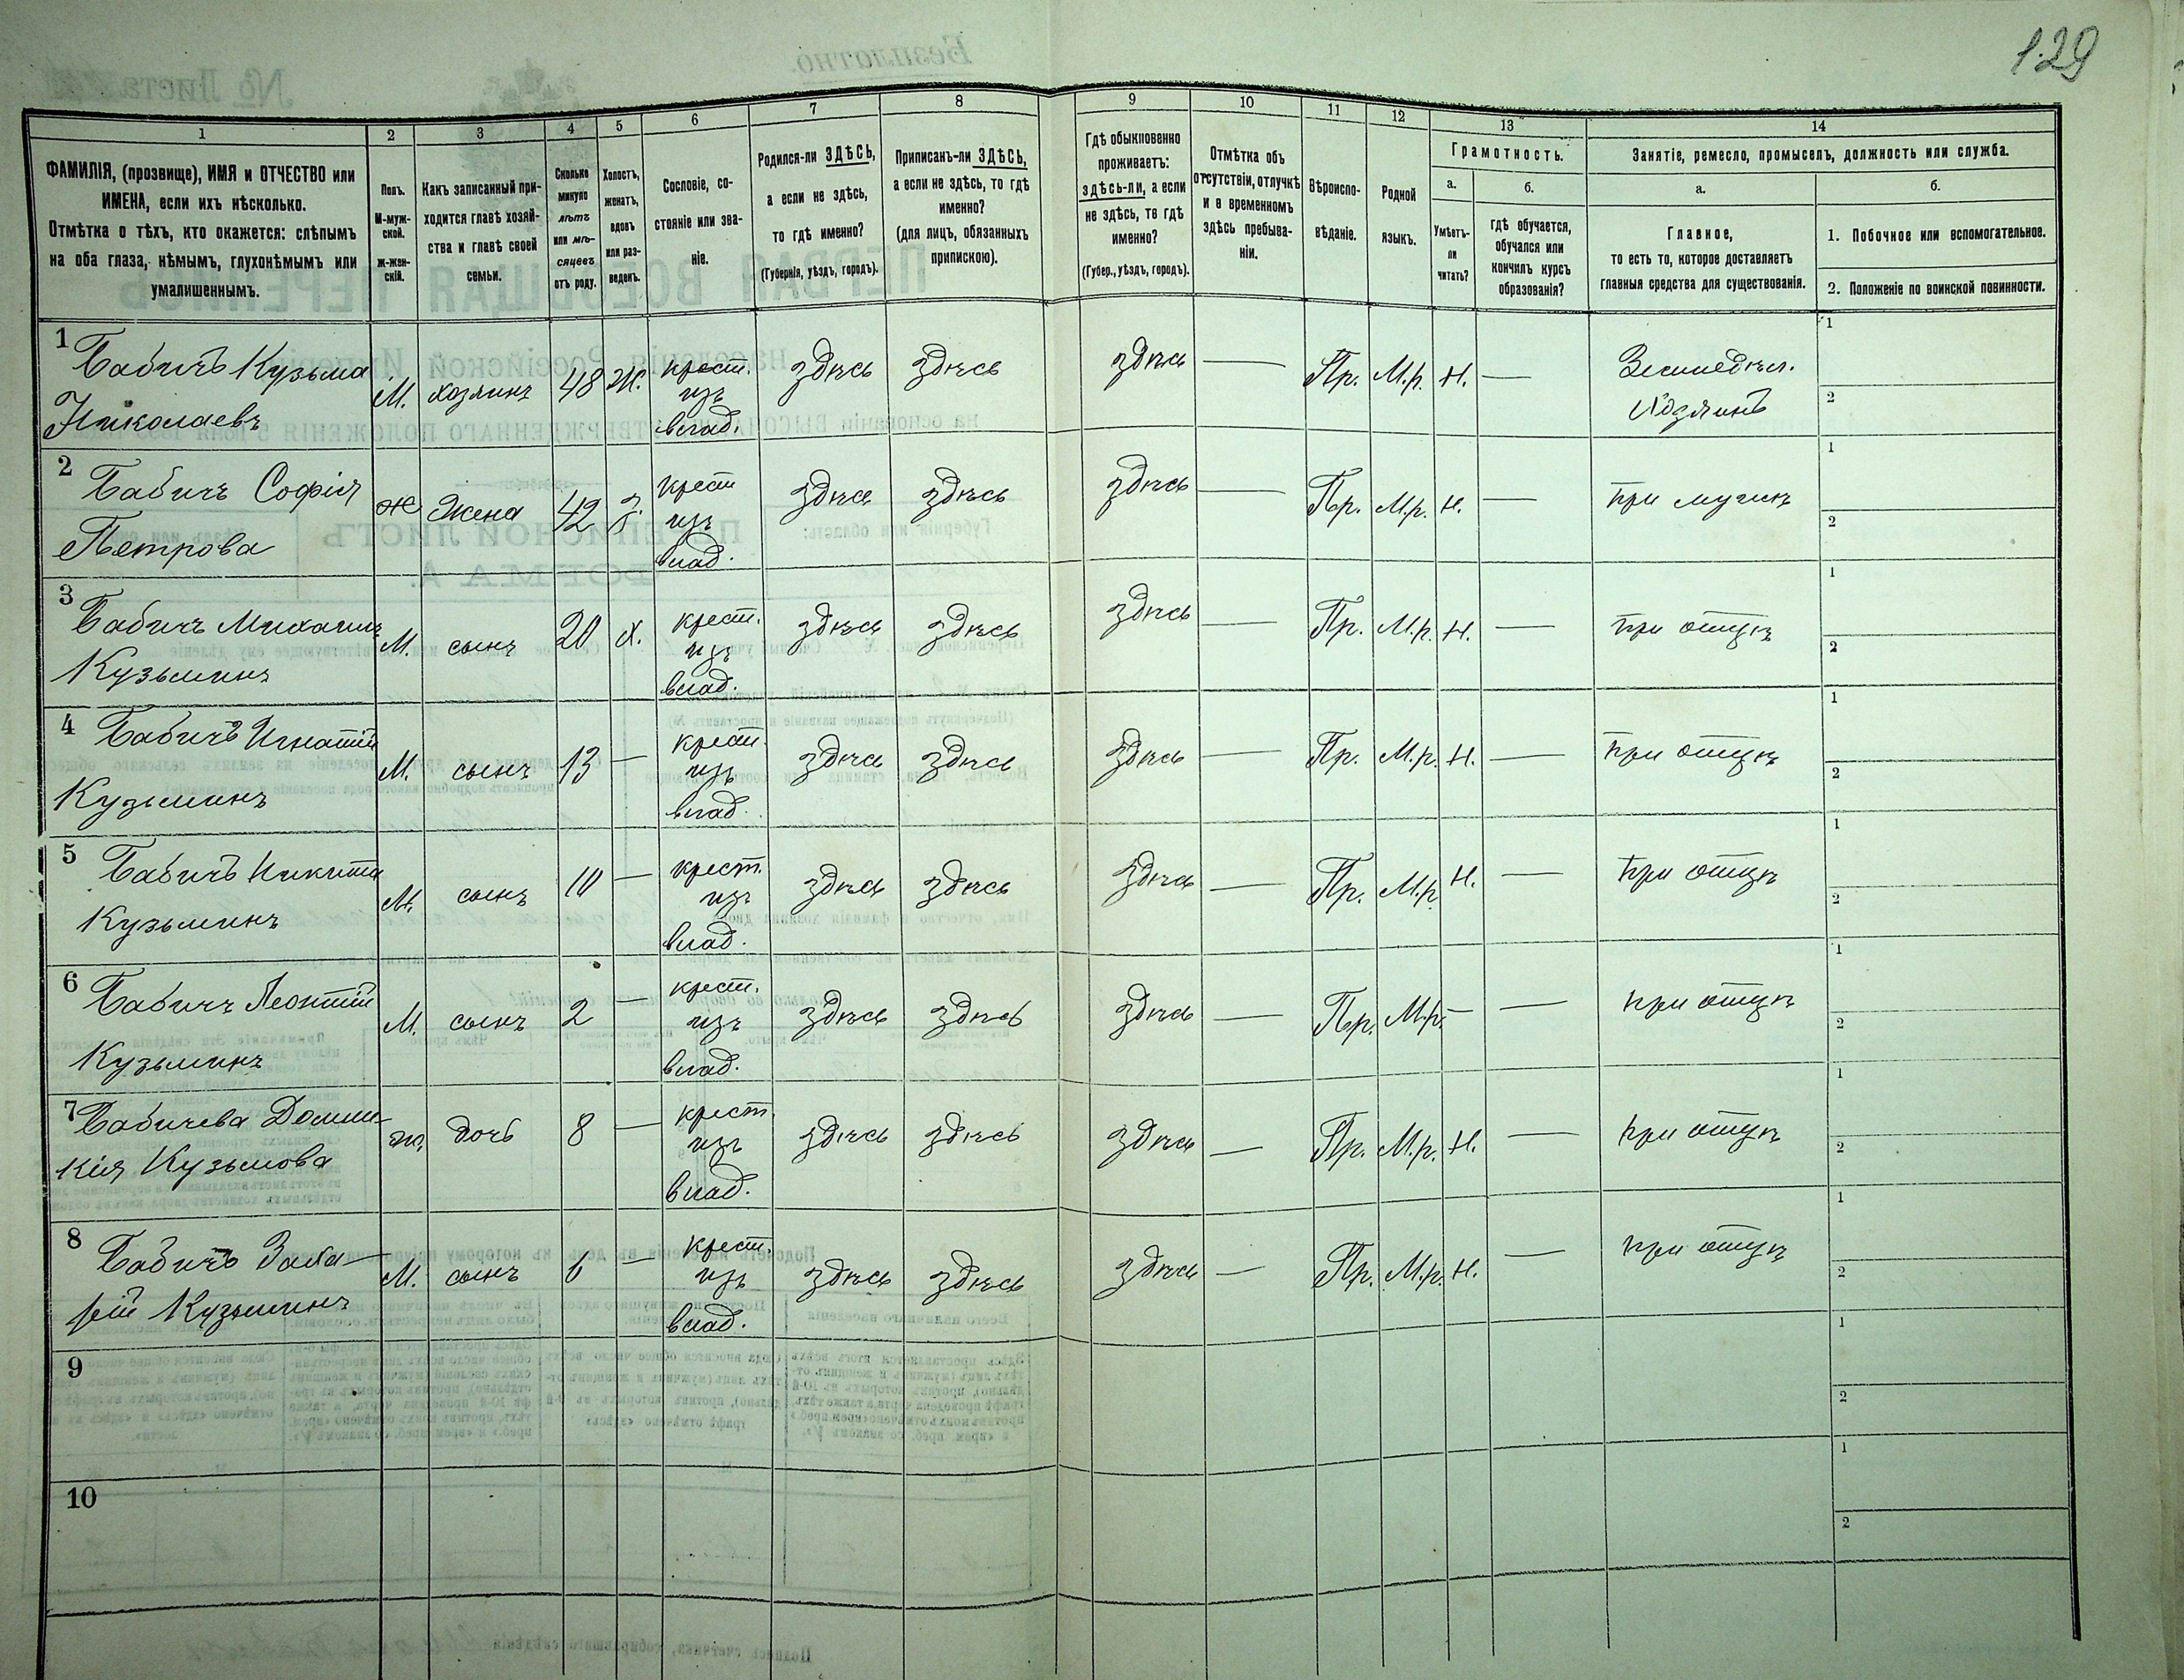 129
1
2
3
4
5
6
7
8
9
10
11
12
13
14
ФАМИЛІЯ, (прозвище), ИМЯ и ОТЧЕСТВО или
ИМЕНА, если ихъ нѣсколько.
Отмѣтка о тѣхъ, кто окажется: слѣпымъ
на оба глаза, нѣмымъ, глухонѣмымъ или
умалишеннымъ.
Полъ.
М-муж-
ской.
ж-жен-
скій.
Какъ записанный при-
ходится главѣ хозяй-
ства и главѣ своей
семьи.
Сколько
минуло
лѣтъ
или мѣ-
сяцевъ
отъ роду.
Холостъ,
женатъ,
вдовъ
или раз-
веденъ.
Сословіе, со-
стояніе или зва-
ніе.
Родился-ли ЗДѢСЬ,
а если не здѣсь,
то гдѣ именно?
(Губернія, уѣздъ, городъ).
Приписанъ-ли ЗДѢСЬ,
а если не здѣсь, то гдѣ
именно?
(для лицъ, обязанныхъ
припискою).
Гдѣ обыкновенно
проживаетъ:
здѣсь-ли, а если
не здѣсь, то гдѣ
именно?
(Губер., уѣздъ, городъ).
Отмѣтка объ
отсутствіи, отлучкѣ
и о временномъ
здѣсь пребыва-
ніи.
Вѣроиспо-
вѣданіе.
Родной
языкъ.
Грамотность.
а.
б.
Умѣетъ-
ли
читать?
Гдѣ обучается,
обучался или
кончилъ курсъ
образованія?
Занятіе, ремесло, промыселъ, должность или служба.
а.
б.
Главное,
то есть то, которое доставляетъ
главныя средства для существованія.
1. Побочное или вспомогательное.
2. Положеніе по воинской повинности.
1 Бабичъ Кузьма
Николаевъ
М. хозяинъ 48 Ж. крест.
изъ
влад.
здѣсь здѣсь здѣсь — Пр. М.р. Н. —
Земледѣл.
Хозяинъ
1
2
2 Бабичъ Софія
Петрова
Ж Жена 42 З. крест
изъ
влад.
здѣсь здѣсь здѣсь — Пр. М.р. Н. — при мужѣ
1
2
3 Бабичъ Михаилъ
Кузьминъ
М. сынъ 20 Х. крест.
изъ
влад.
здѣсь здѣсь здѣсь — Пр. М.р. Н. — при отцѣ
1
2
4 Бабичъ Игнатій
Кузьминъ
М. сынъ 13 — крест.
изъ
влад.
здѣсь здѣсь здѣсь — Пр. М.р. Н. — при отцѣ
1
2
5 Бабичъ Никита
Кузьминъ
М. сынъ 10 — крест.
изъ
влад.
здѣсь здѣсь здѣсь — Пр. М.р. Н. — при отцѣ
1
2
6 Бабичъ Леонтій
Кузьминъ
М. сынъ 2 — крест.
изъ
влад.
здѣсь здѣсь здѣсь — Пр. М.р. — — при отцѣ
1
2
7 Бабичева Доми-
кія Кузьмова
ж. дочь 8 — крест.
изъ
влад.
здѣсь здѣсь здѣсь — Пр. М.р. Н. — при отцѣ
1
2
8 Бабичъ Заха-
рій Кузьминъ
М. сынъ 6 — крест.
изъ
влад.
здѣсь здѣсь здѣсь — Пр. М.р. Н. — при отцѣ
1
2
9
1
2
10
1
2